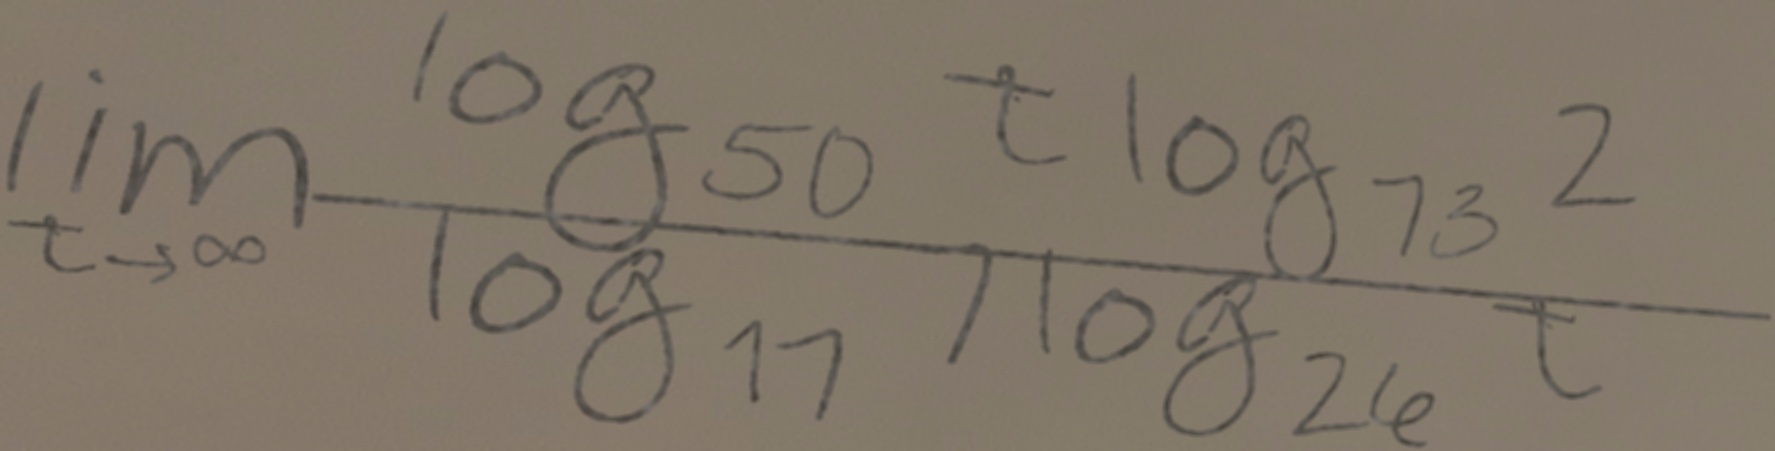 lim t→∞ \frac{log_{50} t log_{73} 2}{log_{17} 7 log_{26} t}